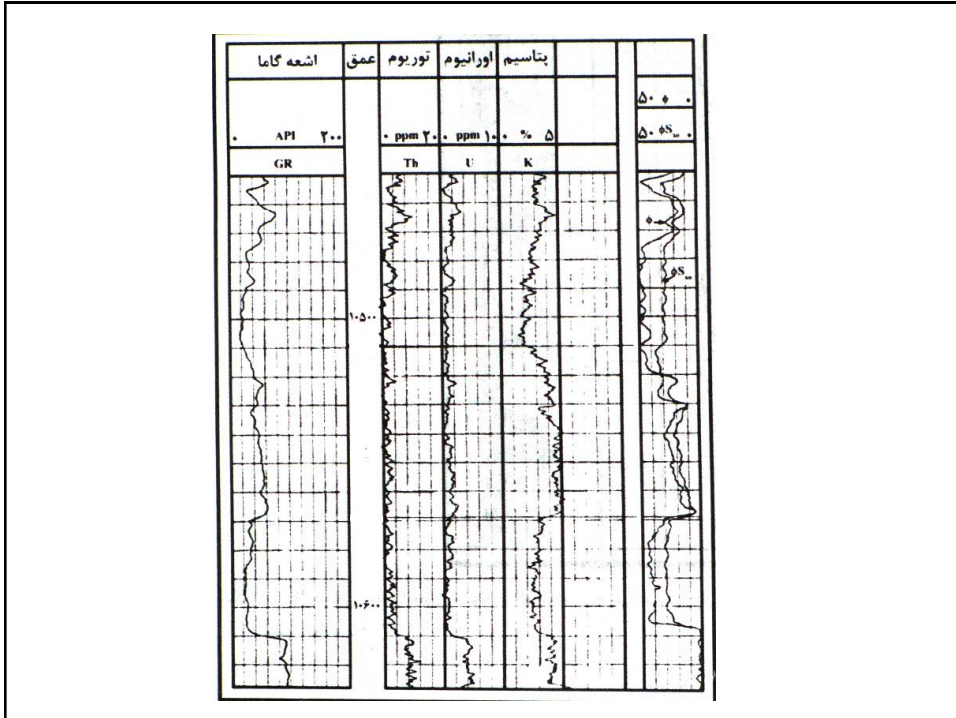 اشعه گاما عمق توریوم اورانیوم پتاسیم
۵۰ ϕ ۰
۰ API ۲۰۰ ۰ ppm ۲۰ ۰ ppm ۱۰ ۰ % ۵ ۵۰ ϕSₓₒ ۰
GR Th U K
ϕ
ϕSₓₒ
۱۰۵۰۰
۱۰۶۰۰